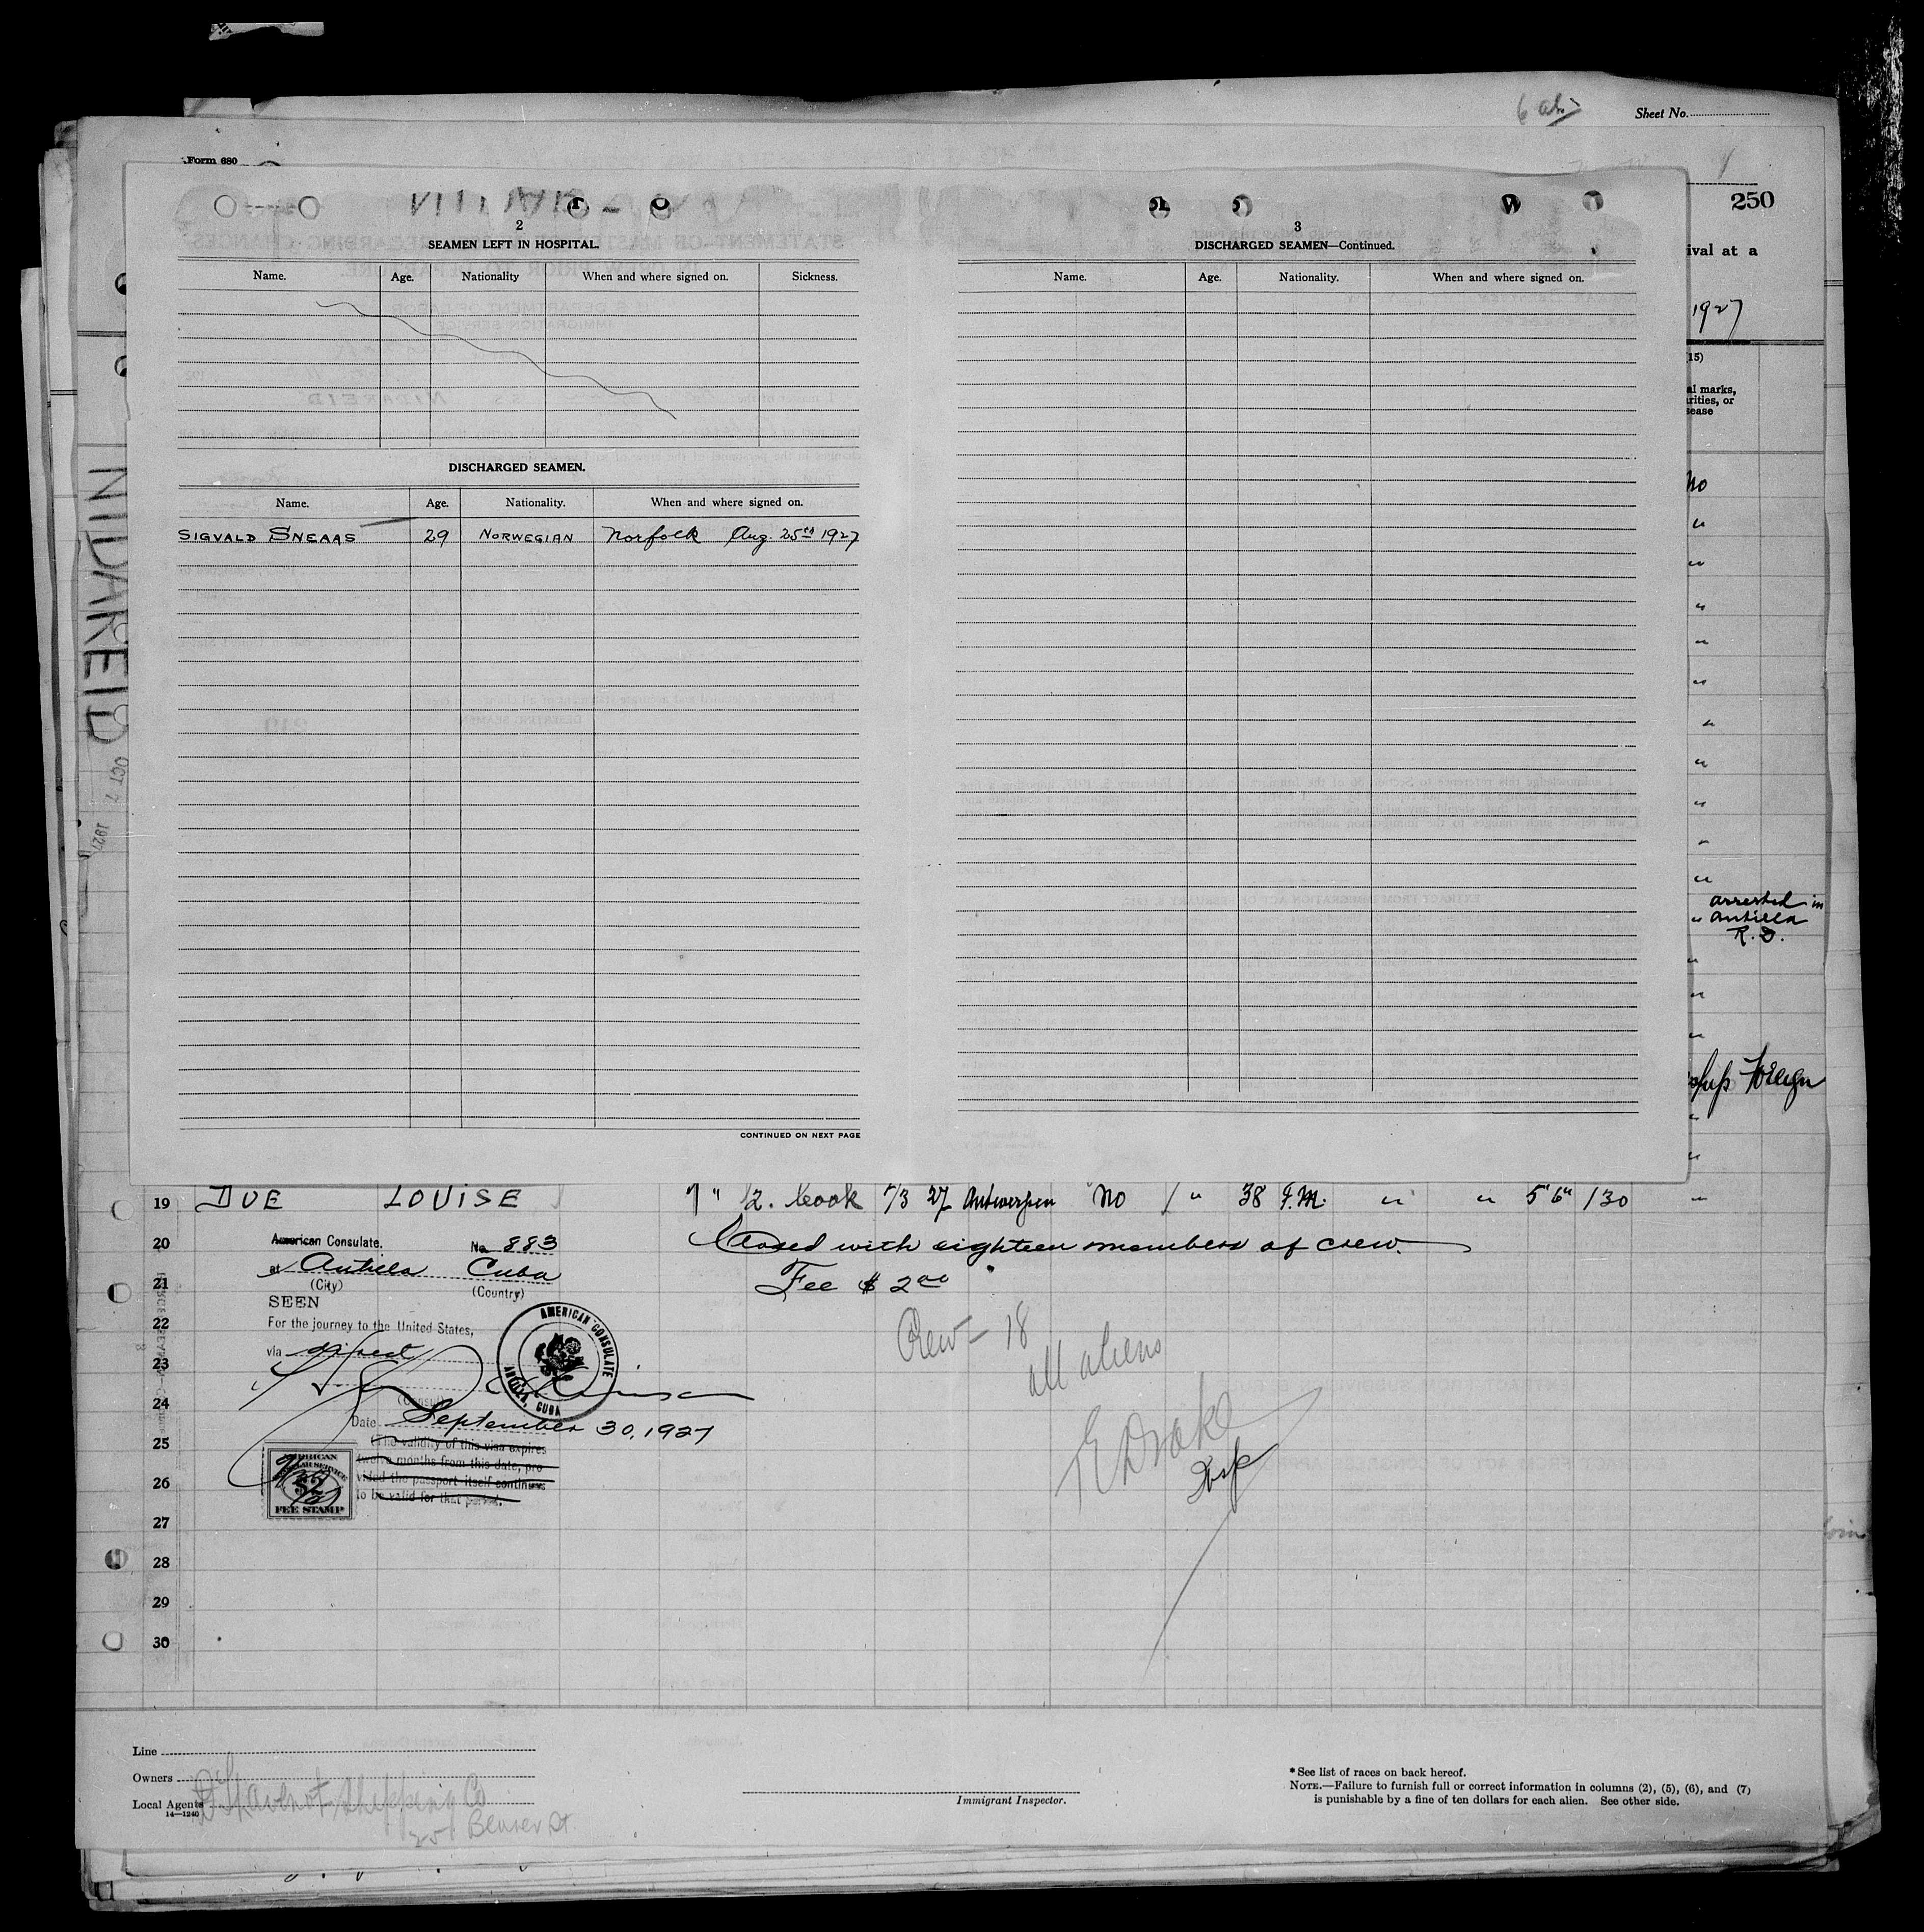 6 al.
Sheet No.
Form 680
250
ival at a
1927
(15)
al marks,
rities, or
sease
2
SEAMEN LEFT IN HOSPITAL.
Name. Age. Nationality When and where signed on. Sickness.
DISCHARGED SEAMEN.
Name. Age. Nationality. When and where signed on.
SIGVALD SNEAAS 29 NORWEGIAN Norfolk Aug. 25th 1927
CONTINUED ON NEXT PAGE
3
DISCHARGED SEAMEN—Continued.
Name. Age. Nationality. When and where signed on.
NIDAREID OCT 7 1927
No
"
"
"
"
"
"
"
"
"
"
arrested in
" Antilla
"
"
"
Foreign
"
"
19 DUE LOUISE 7 " 2. Cook 7/3 27 Antwerpen No / " 38 F. M. " " 5" 6" 130 "
20 Closed with eighteen members of crew.
Fee $ 2 00
American Consulate. No. 883
at Antilla Cuba
(City) (Country)
21
SEEN
22
For the journey to the United States,
via direct
23
AMERICAN CONSULATE
ANTILLA, CUBA
24
(Consul)
Date September 30, 1927
25
(The validity of this visa expires
twelve months from this date, pro
vided the passport itself continues
to be valid for that period.
26
AMERICAN
SERVICE
$2
FEE STAMP
Crew — 18
all aliens
E Drake
Insp
27
28
29
30
Line
Owners
Local Agents
Shipping Co
25 Beaver St.
14—1240
Immigrant Inspector.
* See list of races on back hereof.
NOTE.—Failure to furnish full or correct information in columns (2), (5), (6), and (7)
is punishable by a fine of ten dollars for each alien. See other side.